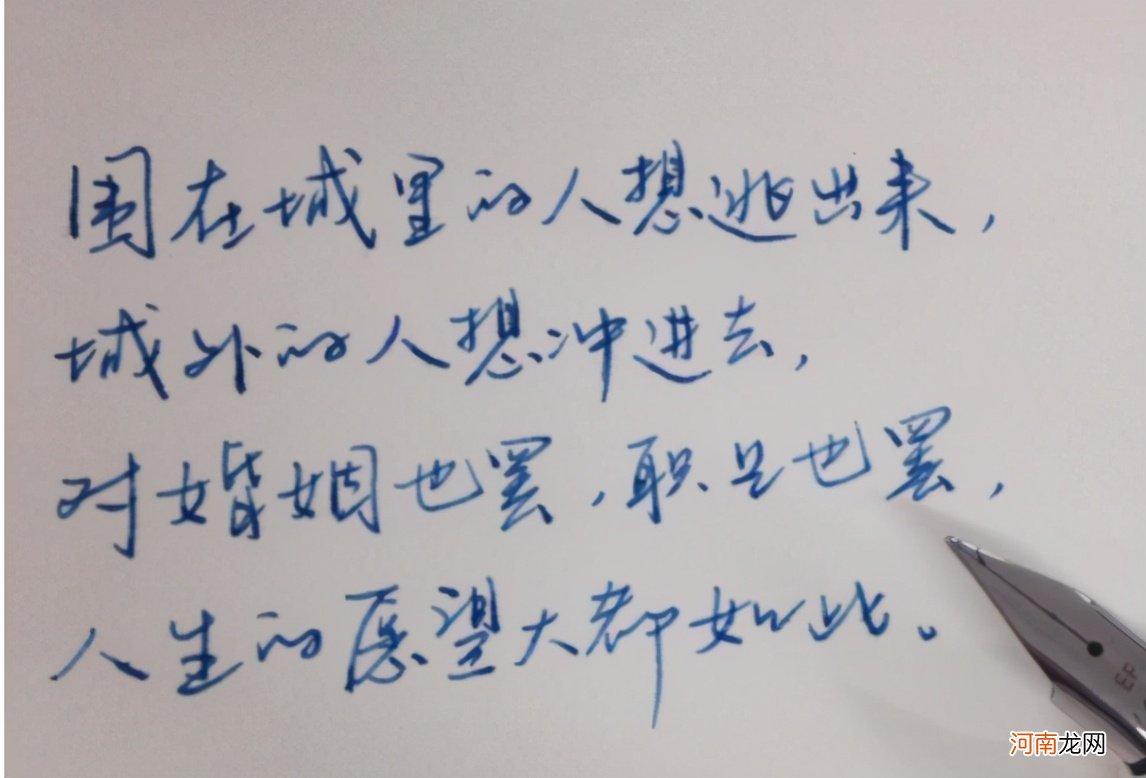 围在城里的人想逃出来，
城外的人想冲进去，
对婚姻也罢，职业也罢，
人生的愿望大都如此。
EF
河南龙网